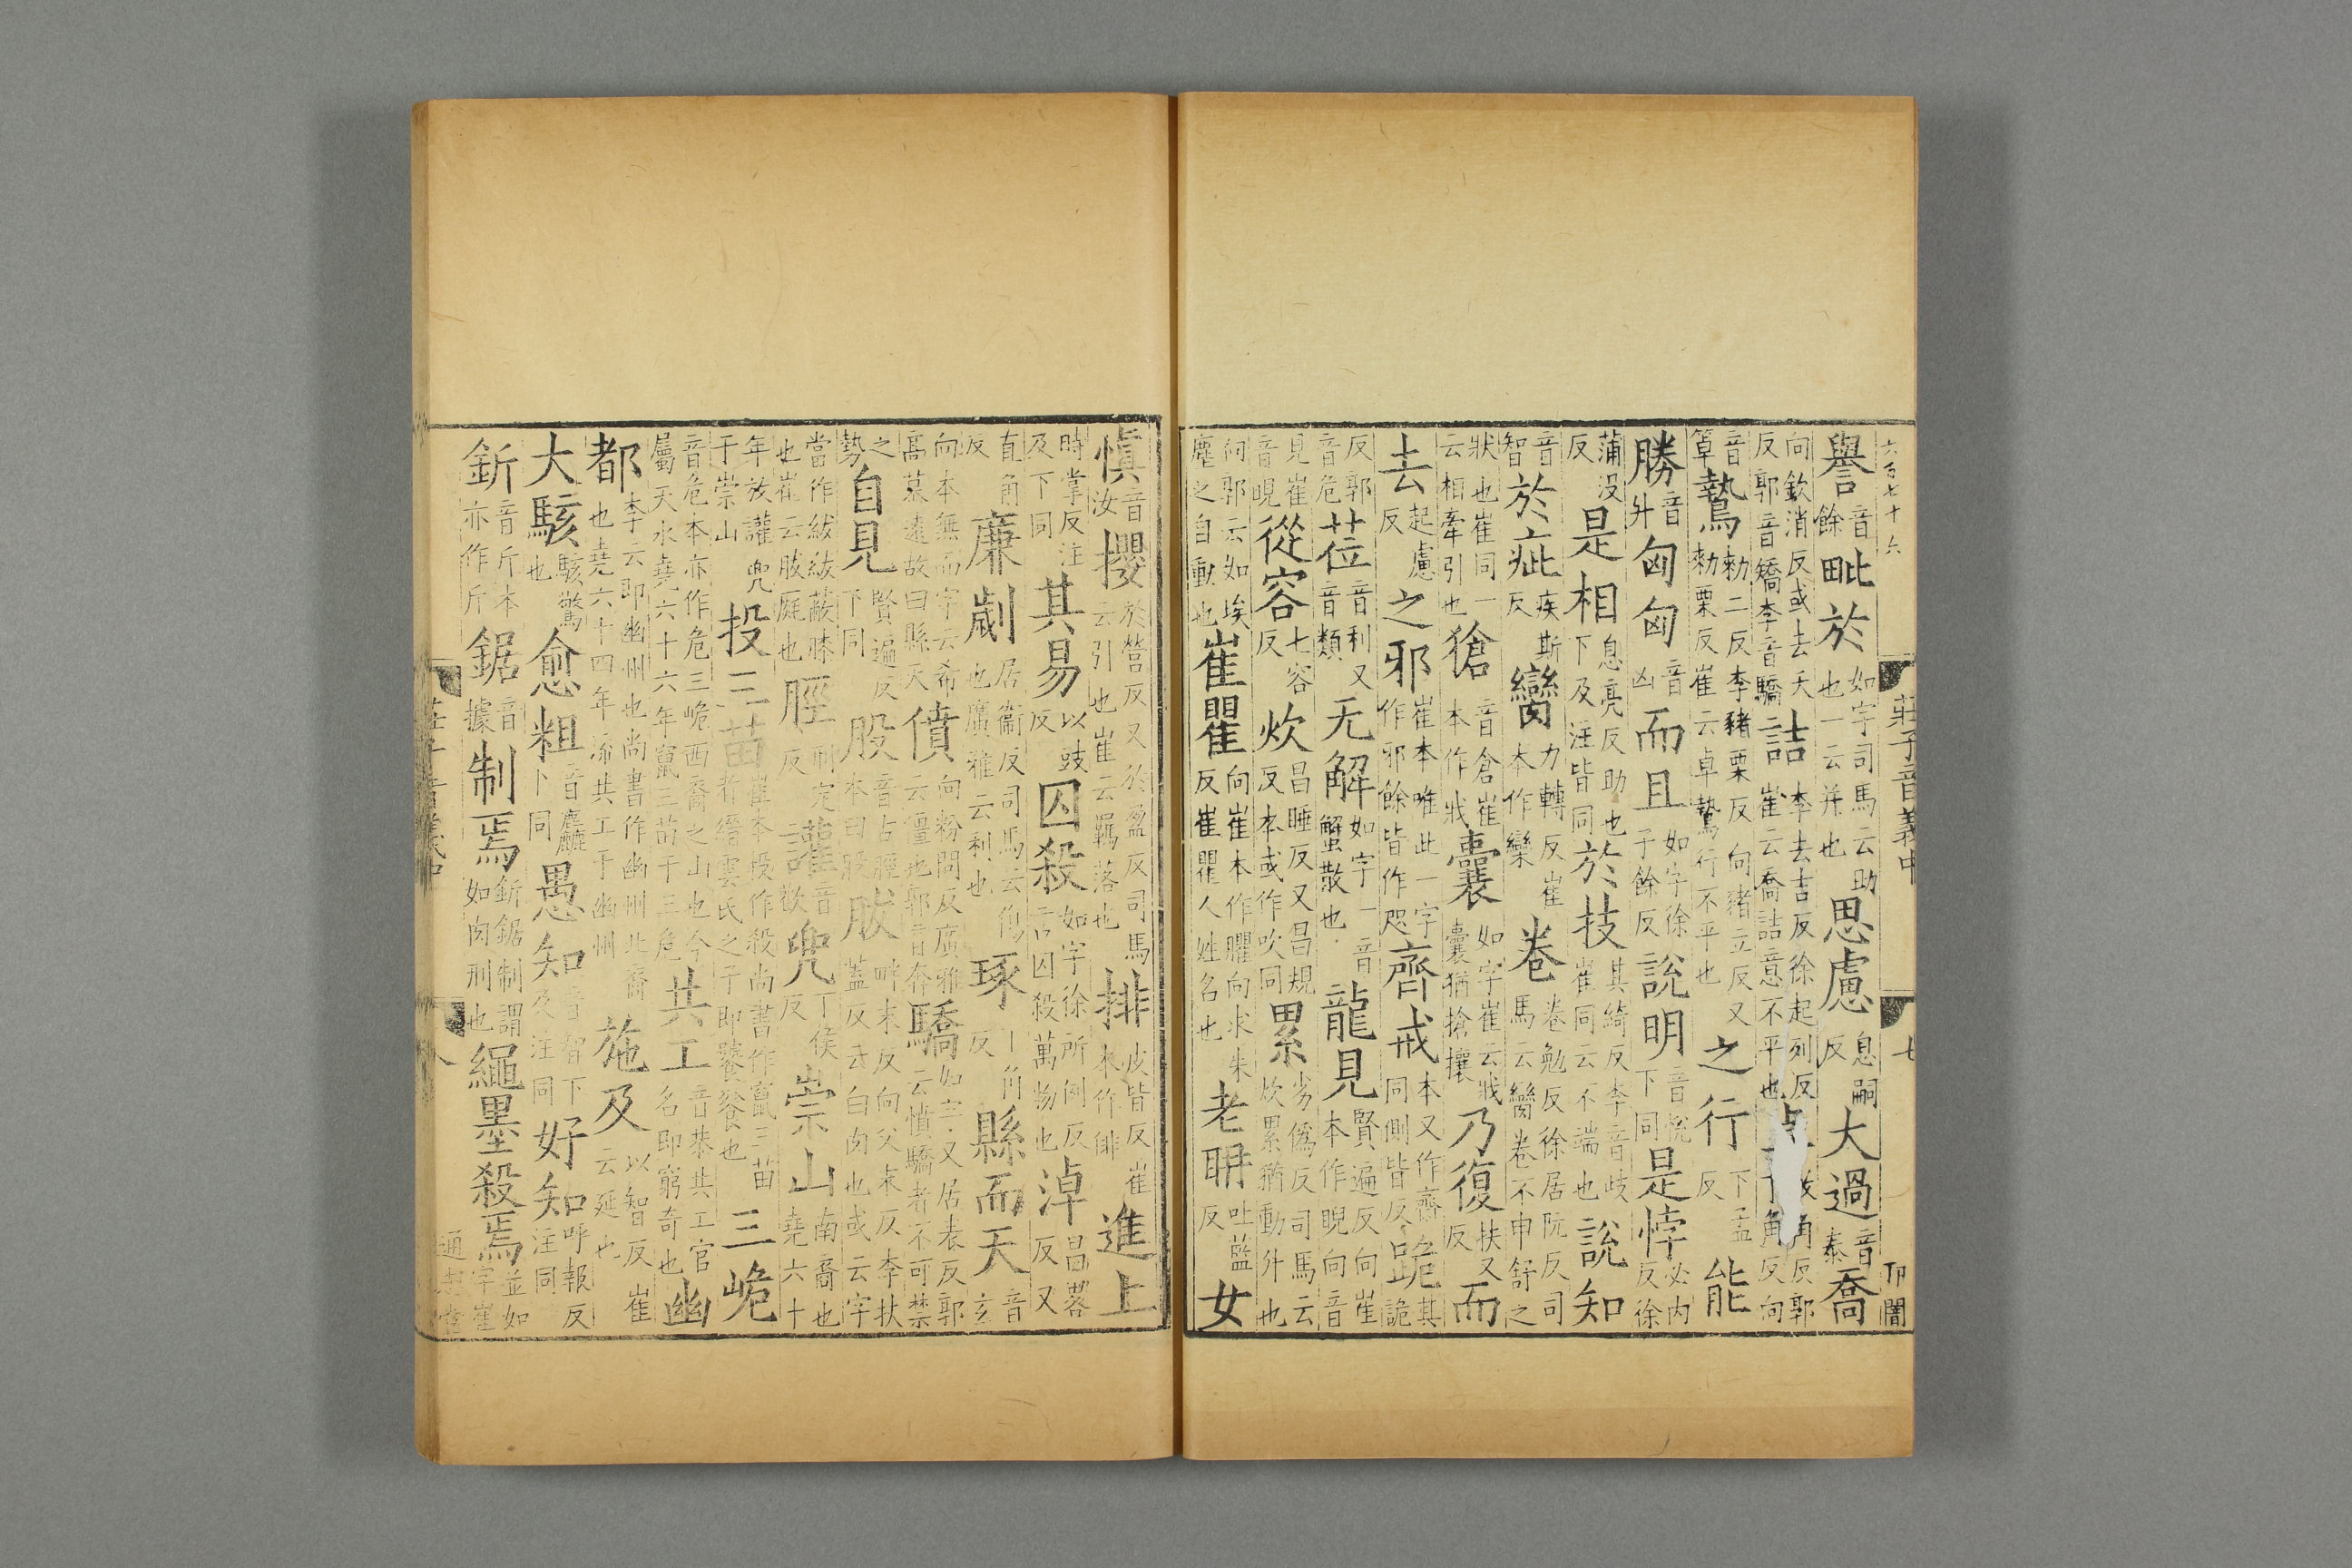 六百七十六 莊子音義中 七
譽音餘 毗於如字司馬云助也一云并也 思慮息嗣反 大過音泰 喬
向欽消反或去夭反郭音矯李音驕 詰李去吉反徐起列反崔云喬詰意不平也 角反郭角反向
音 鷙勑二反李豬栗反向豬立反又勑栗反崔云卓鷙行不平也 之行下孟反 能
勝音升 匈匈音凶 而且如字徐子餘反 說明音悅下同 是悖必内反徐
蒲没反 是相息亮反助也下及注皆同 於技其綺反李音歧崔同云不端也 說知
音智 於疵疾斯反 臠力轉反崔本作欒 卷卷勉反徐居阮反司馬云臠卷不申舒之
狀也崔同一云相牽引也 獊音倉崔本作戕 囊如字崔云戕囊猶搶攘 乃復扶又反 而
去起慮反 之邪崔本唯此一字作邪餘皆作咫 齊戒本又作齋同側皆反 跪其詭
反郭音危 莅音利又音類 无解如字一音蟹散也 龍見賢遍反向崔本作睍向音
見崔音睍 從容七容反 炊昌睡反又昌規反本或作吹同 累劣僞反司馬云炊累猶動升也
向郭云如埃塵之自動也 崔瞿向崔本作臞向求朱反崔瞿人姓名也 老耼吐藍反 女
慎音汝 攖於營反又於盈反司馬云引也崔云羈落也 排皮皆反崔本作俳 進上
時掌反注及下同 其易以豉反 囚殺如字徐所例反言囚殺萬物也 淖昌䓬反又
直角反 廉劌居衞反司馬云傷也廣雅云利也 琢丁角反 縣而天音玄
向本無而字云希高慕遠故曰縣天 僨向粉問反廣雅云僵也郭音奔 驕如字又居表反郭云憤驕者不可禁
之勢 自見賢遍反下同 股音古脛本曰股 胈畔末反向父末反李扶蓋反云白肉也或云字
當作紱紱蔽膝也崔云胈厖也 脛刑定反 讙音歡 兜丁侯反 崇山南裔也堯六十
年放讙兜于崇山 投三苗崔本投作殺尚書作竄三苗者縉雲氏之子即饕餮也 三峗
音危本亦作危三峗西裔之山也今屬天水堯六十六年竄三苗于三危 共工音恭共工官名即窮奇也 幽
都李云即幽州也尚書作幽州北裔也堯六十四年流共工于幽州 施及以智反崔云延也
大駭駭驚也 愈粗音麤下同 愚知音智下及注同 好知呼報反注同
釿音斤本亦作斤 鋸音據 制焉釿鋸制謂如肉刑也 繩墨殺焉並如字崔
莊子音義中 八 通志堂